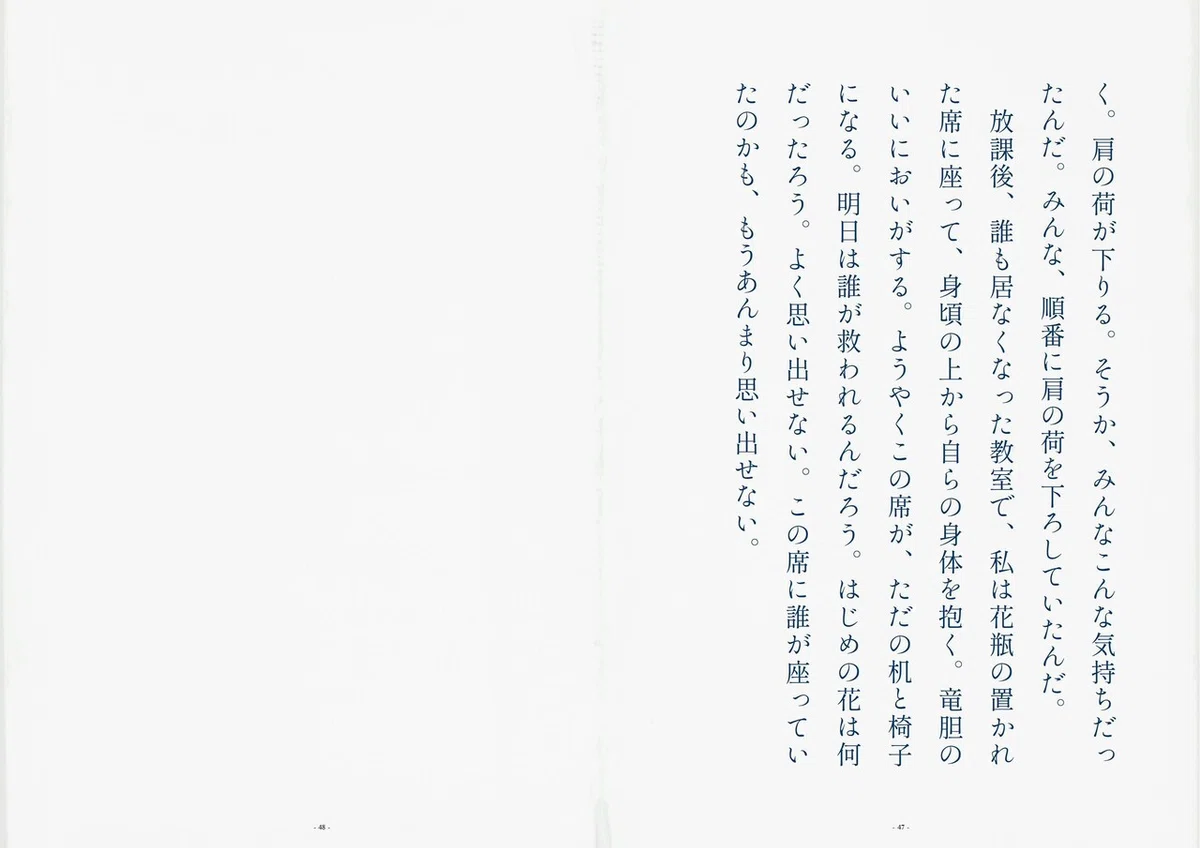 く。肩の荷が下りる。そうか、みんなこんな気持ちだっ
たんだ。みんな、順番に肩の荷を下ろしていたんだ。
　放課後、誰も居なくなった教室で、私は花瓶の置かれ
た席に座って、身頃の上から自らの身体を抱く。竜胆の
いいにおいがする。ようやくこの席が、ただの机と椅子
になる。明日は誰が救われるんだろう。はじめの花は何
だったろう。よく思い出せない。この席に誰が座ってい
たのかも、もうあんまり思い出せない。
- 47 -
- 48 -